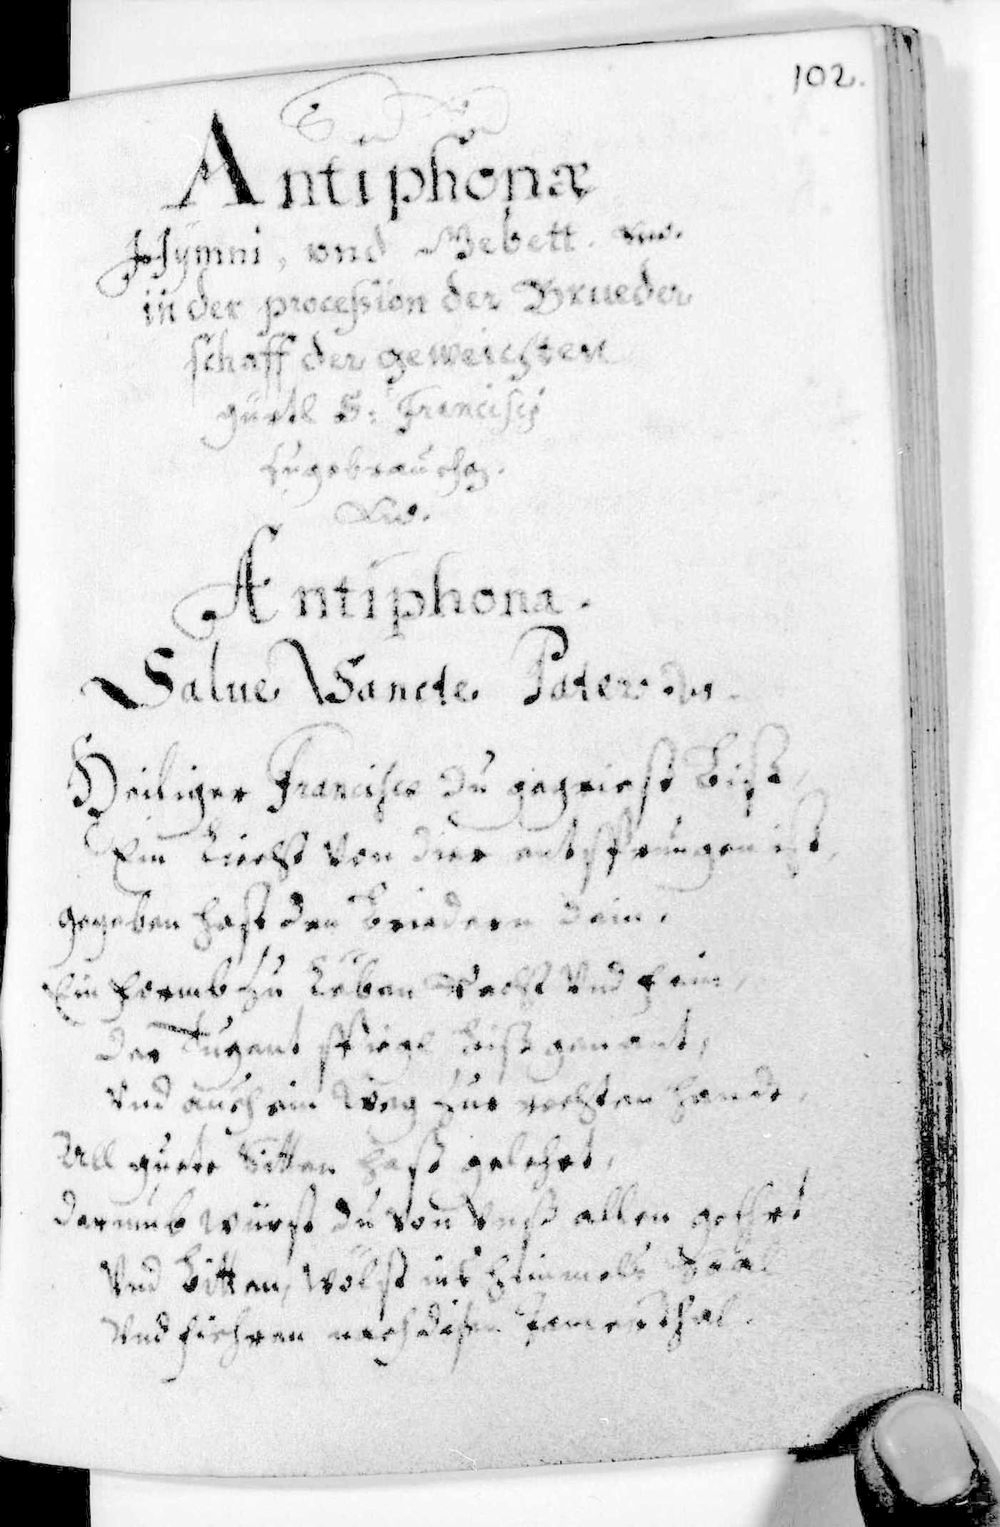 102.
Antiphonæ
Hÿmni, vnd Gebett.
in der procession der Brueder
schafft der geweichten
gürtl S: Francisci
zugebrauchen.
Antiphona.
Salue Sancte Pater
Heiliger Francisce du gegriest bist,
Ein Liecht von dier entsprungen ist,
gegeben hast den Briedern dein,
Ein formb zu Leben recht Vnd fein,
Der Tugent Spiegl bist genant,
Vnd auch ein Weg zur rechten handt,
All guete Sitten hast gelehrt,
darumb würst du von Vnß allen geehrt
Vnd bitten, wölst ins himmels Saal
Vnß fiehren nach disem Jamerthal.